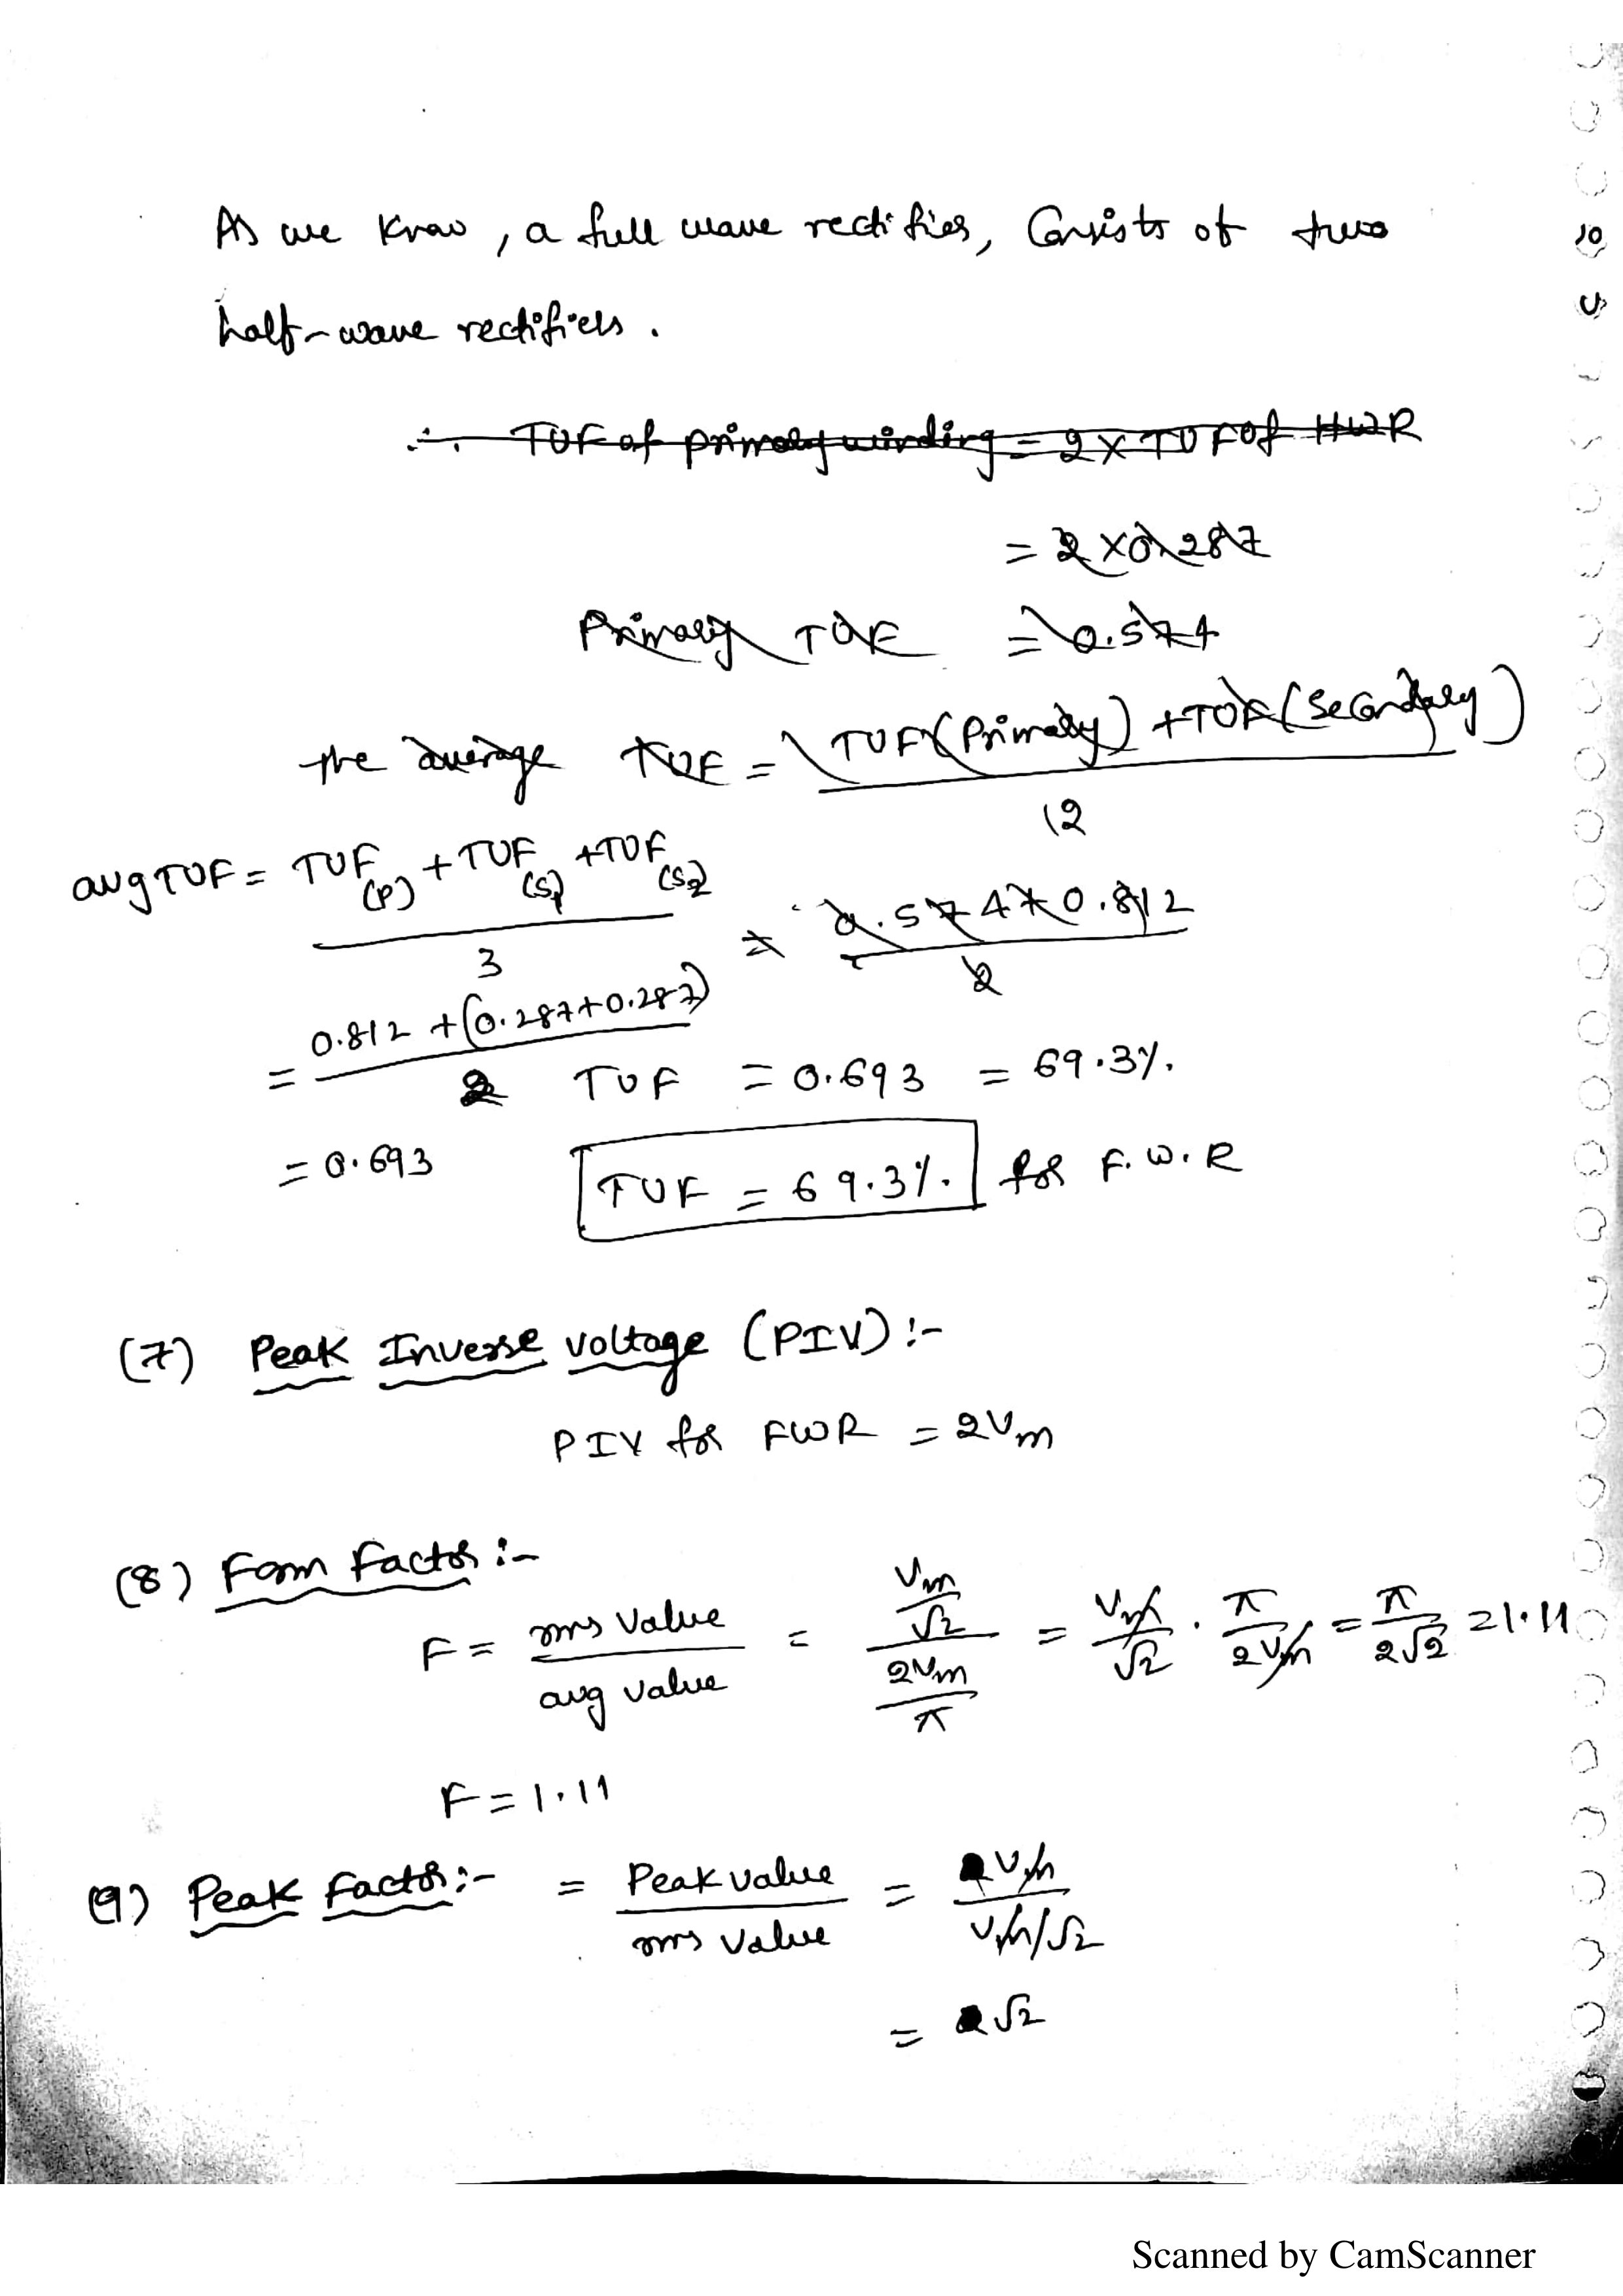 As we know, a full wave rectifies, Consists of two
half-wave rectifiers.
∴ TUF of primary winding = 2 x TUF of HWR
= 2 x 0.287
Primary TUF = 0.574
the average TUF = TUF (Primary) + TUF (Secondary)
2
avg TUF = TUF(P) + TUF(S1) + TUF(S2)
3
= 0.574 + 0.812
2
= 0.812 + (0.287+0.287)
2
TUF = 0.693 = 69.3%.
= 0.693
TUF = 69.3%. for F.W.R
(7) Peak Inverse voltage (PIV) :-
PIV for FWR = 2Vm
(8) Form Factor :-
F = rms value / avg value = (Vm/√2) / (2Vm/π) = Vm/√2 . π/2Vm = π/2√2 = 1.11
F = 1.11
(9) Peak Factor :- = Peak value / rms value = Vm / Vm/√2
= √2
10
Scanned by CamScanner